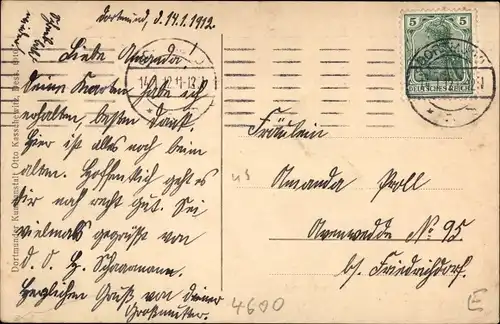 Dortmund, d. 14.1.1912
Liebe Amanda,
Deine Karten habe ich
erhalten, besten Dank.
Hier ist alles noch beim
alten. Hoffentlich geht es
Dir noch recht gut. Sei
vielmals gegrüsst von
D. O. H. Schaarmann.
Herzlichen Gruß von Deiner
Großmutter.
Dortmunder Kunstanstalt Otto
5 5
DEUTSCHES REICH
DORTMUND
14.1.12.11-12
Fräulein
Amanda Poll
Avenwedde No. 95
bs. Friedrichdorf.
4600
E